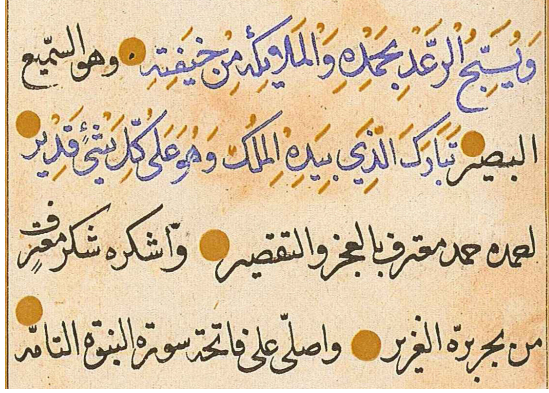 وَيُسَبِّحُ الرَّعْدُ بِحَمْدِهِ وَالْمَلَائِكَةُ مِنْ خِيفَتِهِ وهو السّميع
البصير تَبَارَكَ الَّذِي بِيَدِهِ الْمُلْكُ وَهُوَ عَلَى كُلِّ شَيْءٍ قَدِيرٌ
احمده حمد معترف بالعجز والتقصير وأشكره شكر مغترف
من بحر برّه الغزير واصلّي على فاتحة سورة النبوّة التامّة